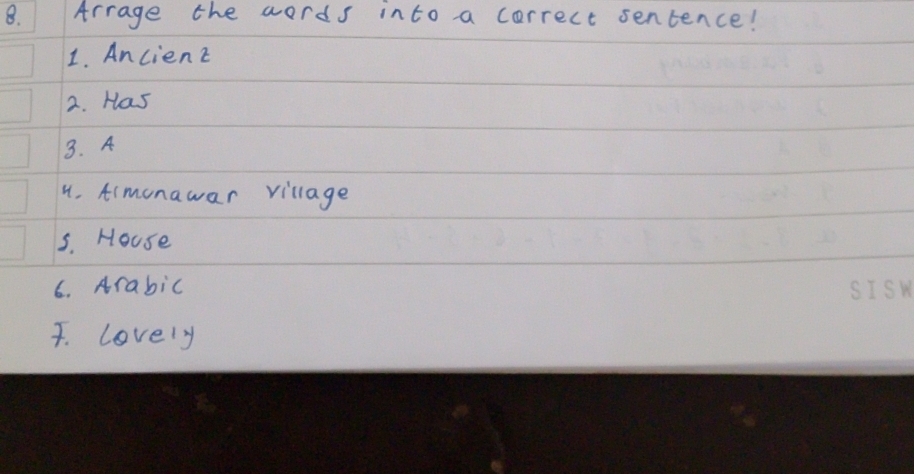 8. Arrage the words into a correct sentence!
1. Ancient
2. Has
3. A
4. Almunawar village
5. House
6. Arabic
7. Lovely
SISW